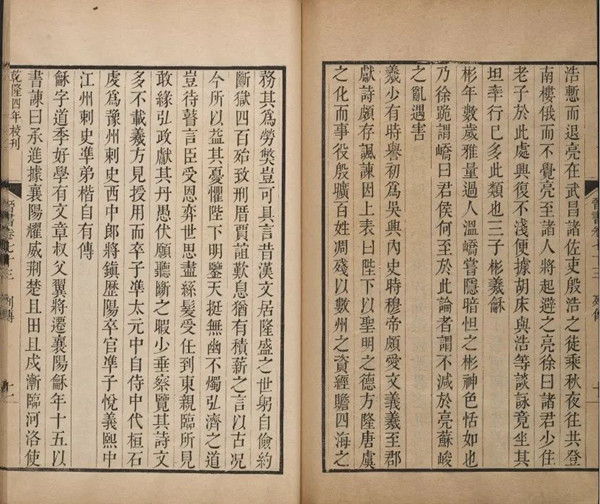 浩慙而退亮在武昌諸佐吏殷浩之徒乘秋夜往共登
南樓俄而不覺亮至諸人將起避之亮徐曰諸君少住
老子於此處興復不淺便據胡床與浩等談詠竟坐其
坦率行已多此類也三子彬羲龢
彬年數歲雅量過人溫嶠嘗隱暗怛之彬神色恬如也
乃徐跪謂嶠曰君侯何至於此論者謂不減於亮蘇峻
之亂遇害
羲少有時譽初爲吳興內史時穆帝頗愛文義羲至郡
獻詩頗存諷諫因上表曰陛下以聖明之德方隆唐虞
之化而事役殷曠百姓凋殘以數州之資經贍四海之
務其爲勞獘豈可具言昔漢文居隆盛之世躬自儉約
斷獄四百殆致刑厝賈誼歎息猶有積薪之言以古況
今所以益其憂懼陛下明鑒天挺無幽不燭弘濟之道
豈待瞽言臣受恩奕世思盡絲髮受任到東親臨所見
敢緣弘政獻其丹愚伏願聽斷之暇少垂察覽其詩文
多不載羲方見授用而卒子準太元中自侍中代桓石
虔爲豫州刺史西中郎將鎮歷陽卒官準子悅義熙中
江州刺史準弟楷自有傳
龢字道季好學有文章叔父翼將遷襄陽龢年十五以
書諫曰承進據襄陽耀威荊楚且田且戍漸臨河洛使
乾隆四年校刊
晉書卷七十三 列傳